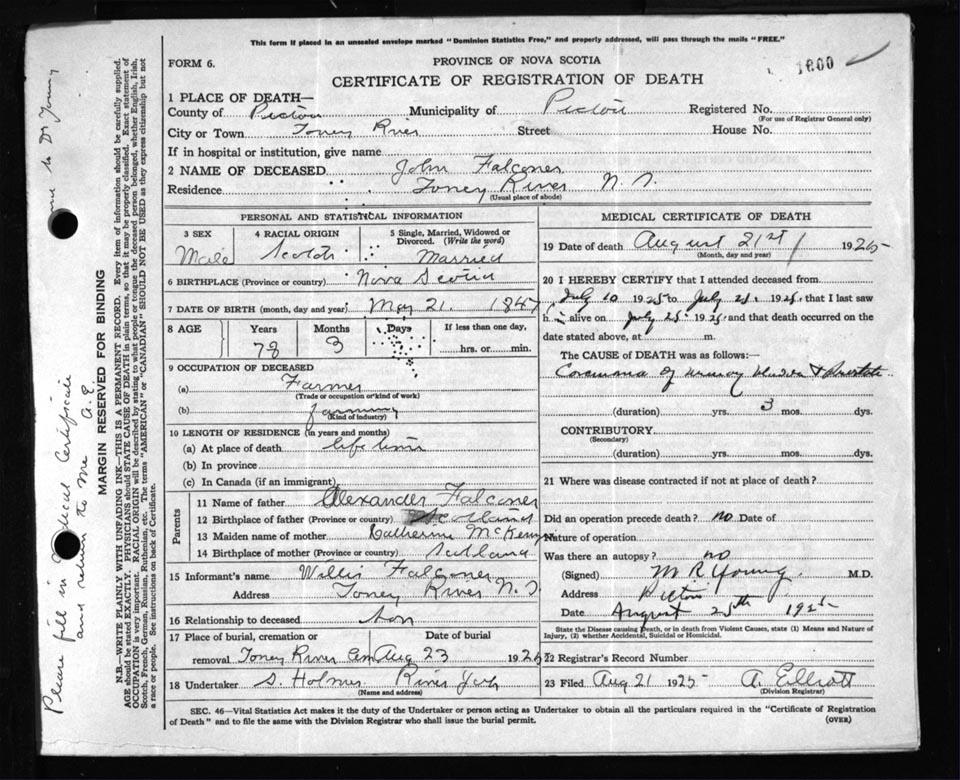 This form if placed in an unsealed envelope marked "Dominion Statistics Free," and properly addressed, will pass through the mails "FREE."
FORM 6.
PROVINCE OF NOVA SCOTIA
1600
CERTIFICATE OF REGISTRATION OF DEATH
1 PLACE OF DEATH—
County of Pictou Municipality of Pictou Registered No.
(For use of Registrar General only)
City or Town Toney River Street House No.
If in hospital or institution, give name
2 NAME OF DECEASED John Falconer
Residence Toney River N. S.
(Usual place of abode)
PERSONAL AND STATISTICAL INFORMATION
3 SEX 4 RACIAL ORIGIN 5 Single, Married, Widowed or
Divorced. (Write the word)
Male Scotch Married
6 BIRTHPLACE (Province or country) Nova Scotia
7 DATE OF BIRTH (month, day and year) May 21. 1847
8 AGE Years Months Days If less than one day,
78 3 hrs. or min.
9 OCCUPATION OF DECEASED
(a) Farmer
(Trade or occupation or kind of work)
(b) farming
(Kind of industry)
10 LENGTH OF RESIDENCE (in years and months)
(a) At place of death life time
(b) In province
(c) In Canada (if an immigrant)
Parents
11 Name of father Alexander Falconer
12 Birthplace of father (Province or country) Scotland
13 Maiden name of mother Catherine
14 Birthplace of mother (Province or country) Scotland
15 Informant's name Willis Falconer
Address Toney River N. S.
16 Relationship to deceased Son
17 Place of burial, cremation or Date of burial
removal Toney River Cem Aug 23 1925
18 Undertaker S. Holmes River John
(Name and address)
MEDICAL CERTIFICATE OF DEATH
19 Date of death August 21st 1925
(Month, day and year)
20 I HEREBY CERTIFY that I attended deceased from
July 10 1925 to July 25. 1925, that I last saw
h alive on July 25 1925, and that death occurred on the
date stated above, at m.
The CAUSE OF DEATH was as follows:
of urinary bladder & Prostate
(duration) yrs. 3 mos. dys.
CONTRIBUTORY
(Secondary)
(duration) yrs. mos. dys.
21 Where was disease contracted if not at place of death?
Did an operation precede death? no Date of
Nature of operation
Was there an autopsy? no
(Signed) M R Young M.D.
Address Pictou
Date August 25th 1925
State the Disease causing Death, or in death from Violent Causes, state (1) Means and Nature of
Injury, (2) whether Accidental, Suicidal or Homicidal.
22 Registrar's Record Number
23 Filed Aug 21 1925 A. Elliott
(Division Registrar)
SEC. 46—Vital Statistics Act makes it the duty of the Undertaker or person acting as Undertaker to obtain all the particulars required in the "Certificate of Registration
of Death" and to file the same with the Division Registrar who shall issue the burial permit.
(OVER)
Please fill in Medical Certificate
and return to me A. E.
to Dr Young
MARGIN RESERVED FOR BINDING
N.B.—WRITE PLAINLY WITH UNFADING INK—THIS IS A PERMANENT RECORD. Every item of information should be carefully supplied.
AGE should be stated EXACTLY. PHYSICIANS should STATE CAUSE OF DEATH in plain terms, so that it may be properly classified. Exact statement of
OCCUPATION is very important. RACIAL ORIGIN will be described by stating to what people or tongue the deceased person belonged, whether English, Irish,
Scotch, French, German, Russian, Ruthenian, etc. The terms "AMERICAN" or "CANADIAN" SHOULD NOT BE USED as they express citizenship but not
a race or people. See instructions on back of Certificate.